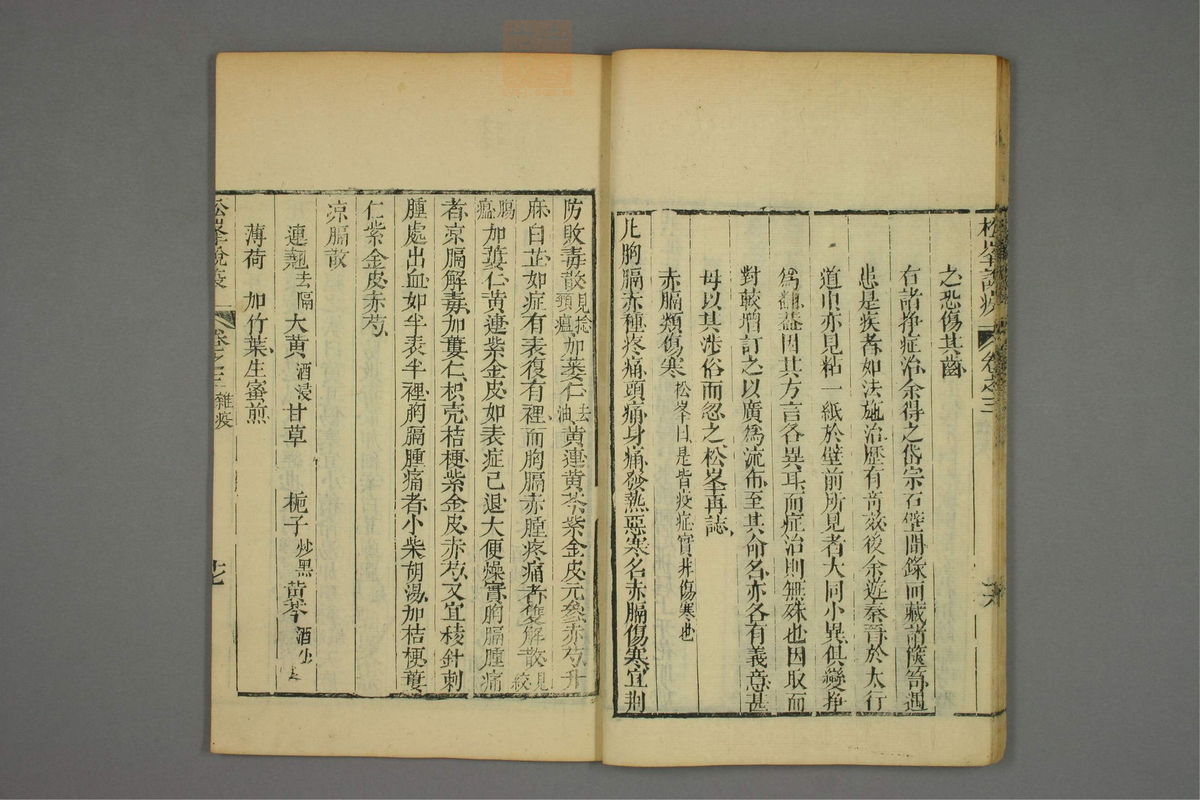 松峯說疫 卷之三
之恐傷其齒
右諸掙症治余得之岱宗石壁間錄而藏諸篋笥遇
患是疾者如法施治歷有奇效後余遊秦晉於太行
道中亦見粘一紙於壁前所見者大同小異俱變掙
為翻蓋因其方言各異耳而症治則無殊也因取而
對較增訂之以廣為流布至其命名亦各有義意甚
毋以其涉俗而忽之松峯再誌
赤膈類傷寒 松峯曰是皆疫症實非傷寒也
凡胸膈赤種疼痛頭痛身痛發熱惡寒名赤膈傷寒宜荆
防敗毒散見捻頸瘟加蔞仁去油黃連黃芩紫金皮元參赤芍升
麻白芷如症有表復有裡而胸膈赤腫疼痛者雙解散見絞
腸瘟加蔞仁黃連紫金皮如表症已退大便燥實胸膈腫痛
者凉膈解毒加蔞仁枳壳桔梗紫金皮赤芍又宜稜針刺
腫處出血如半表半裡胸膈腫痛者小柴胡湯加桔梗蔞
仁紫金皮赤芍
凉膈散
連翹去隔大黃酒浸甘草 梔子炒黑黃芩酒炒
薄荷 加竹葉生蜜煎
松峯說疫 卷之三 雜疫